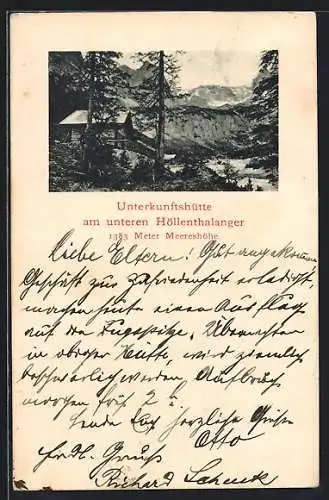 Unterkunftshütte
am unteren Höllenthalanger
1383 Meter Meereshöhe.
Liebe Eltern! Gut angekommen
Geschäft zur Zufriedenheit erledigt,
machen heute einen Ausflug
auf die Zugspitze. Übernachten
in obiger Hütte, wird ziemlich
beschwerlich werden, Aufbruch
morgen früh 2
Sende Euch herzliche Grüße
Otto
Frdl. Gruss
Richard Schenk